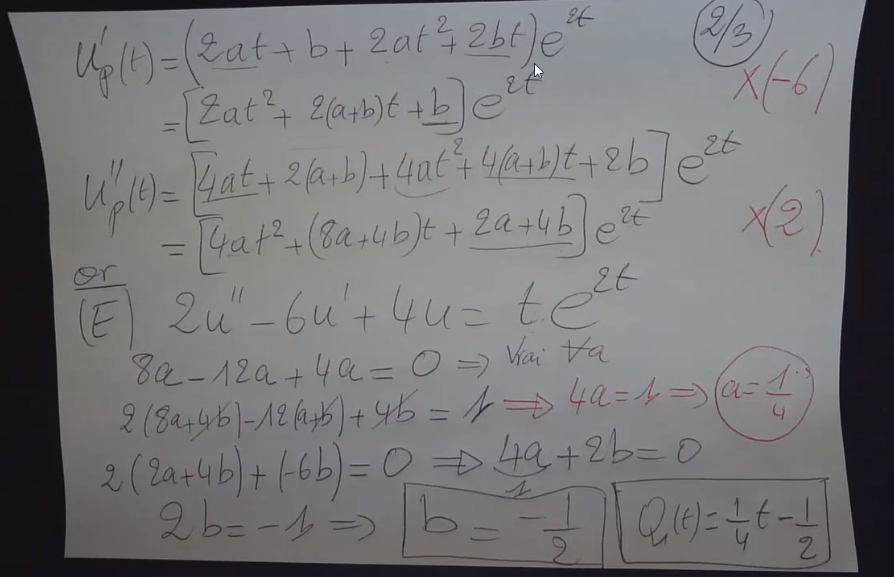 u'_p(t) = (2at + b + 2at² + 2bt) e^{2t}
2/3
×(-6)
= [2at² + 2(a+b)t + b] e^{2t}
u''_p(t) = [4at + 2(a+b) + 4at² + 4(a+b)t + 2b] e^{2t}
×(2)
= [4at² + (8a+4b)t + 2a+4b] e^{2t}
or
(E) 2u'' - 6u' + 4u = t.e^{2t}
8a - 12a + 4a = 0 ⇒ Vrai ∀a
2(8a+4b) - 12(a+b) + 4b = 1 ⇒ 4a = 1 ⇒ a = 1/4
2(2a+4b) + (-6b) = 0 ⇒ 4a + 2b = 0
1
2b = -1 ⇒ b = -1/2
Q_1(t) = 1/4 t - 1/2